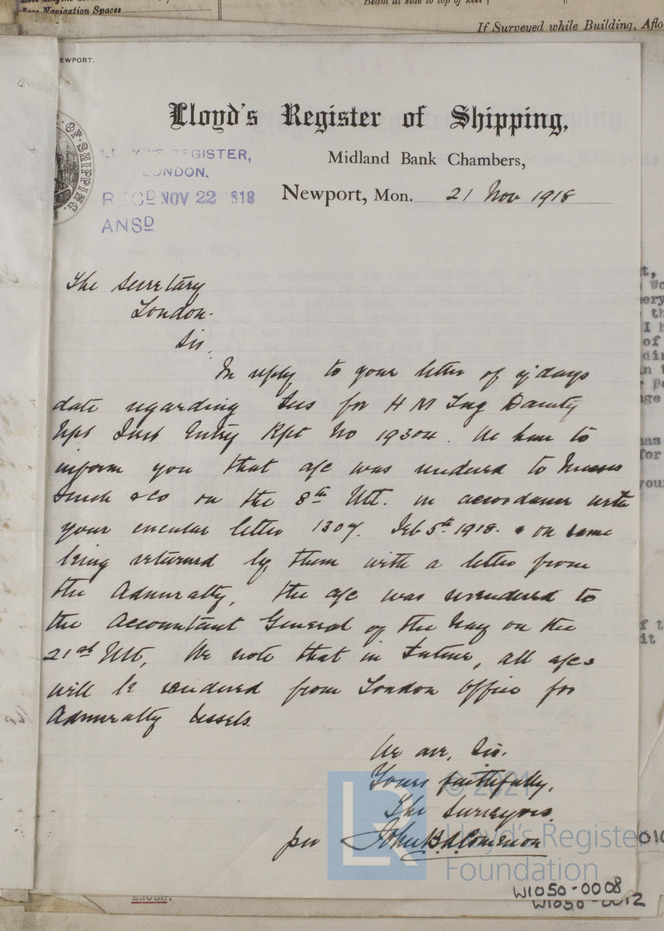 Free Navigation Spaces
If Surveyed while Building, Aflo
EWPORT.
Lloyd's Register of Shipping,
Midland Bank Chambers,
Newport, Mon. 21 Nov 1918
LLOYD'S REGISTER,
LONDON.
REC'D NOV 22 1918
ANSD
The Secretary
London.
Sir,
In reply to your letter of y'days
date regarding Fees for H M Tug Dainty
Npt Entry Rpt No 19304. We have to
inform you that a/c was rendered to Messrs
& Co on the 8th Ult. in accordance with
your circular letter 1307. Feb 5th 1918. & on same
being returned by them with a letter from
the Admiralty, the a/c was rendered to
the Accountant General of the Navy on the
21st Ult, We note that in future, all a/cs
will be rendered from London Office for
Admiralty Vessels.
We are, Sir.
Yours faithfully,
The Surveyors,
per John
© 2021
Lloyd's Register
Foundation
W1050-0008